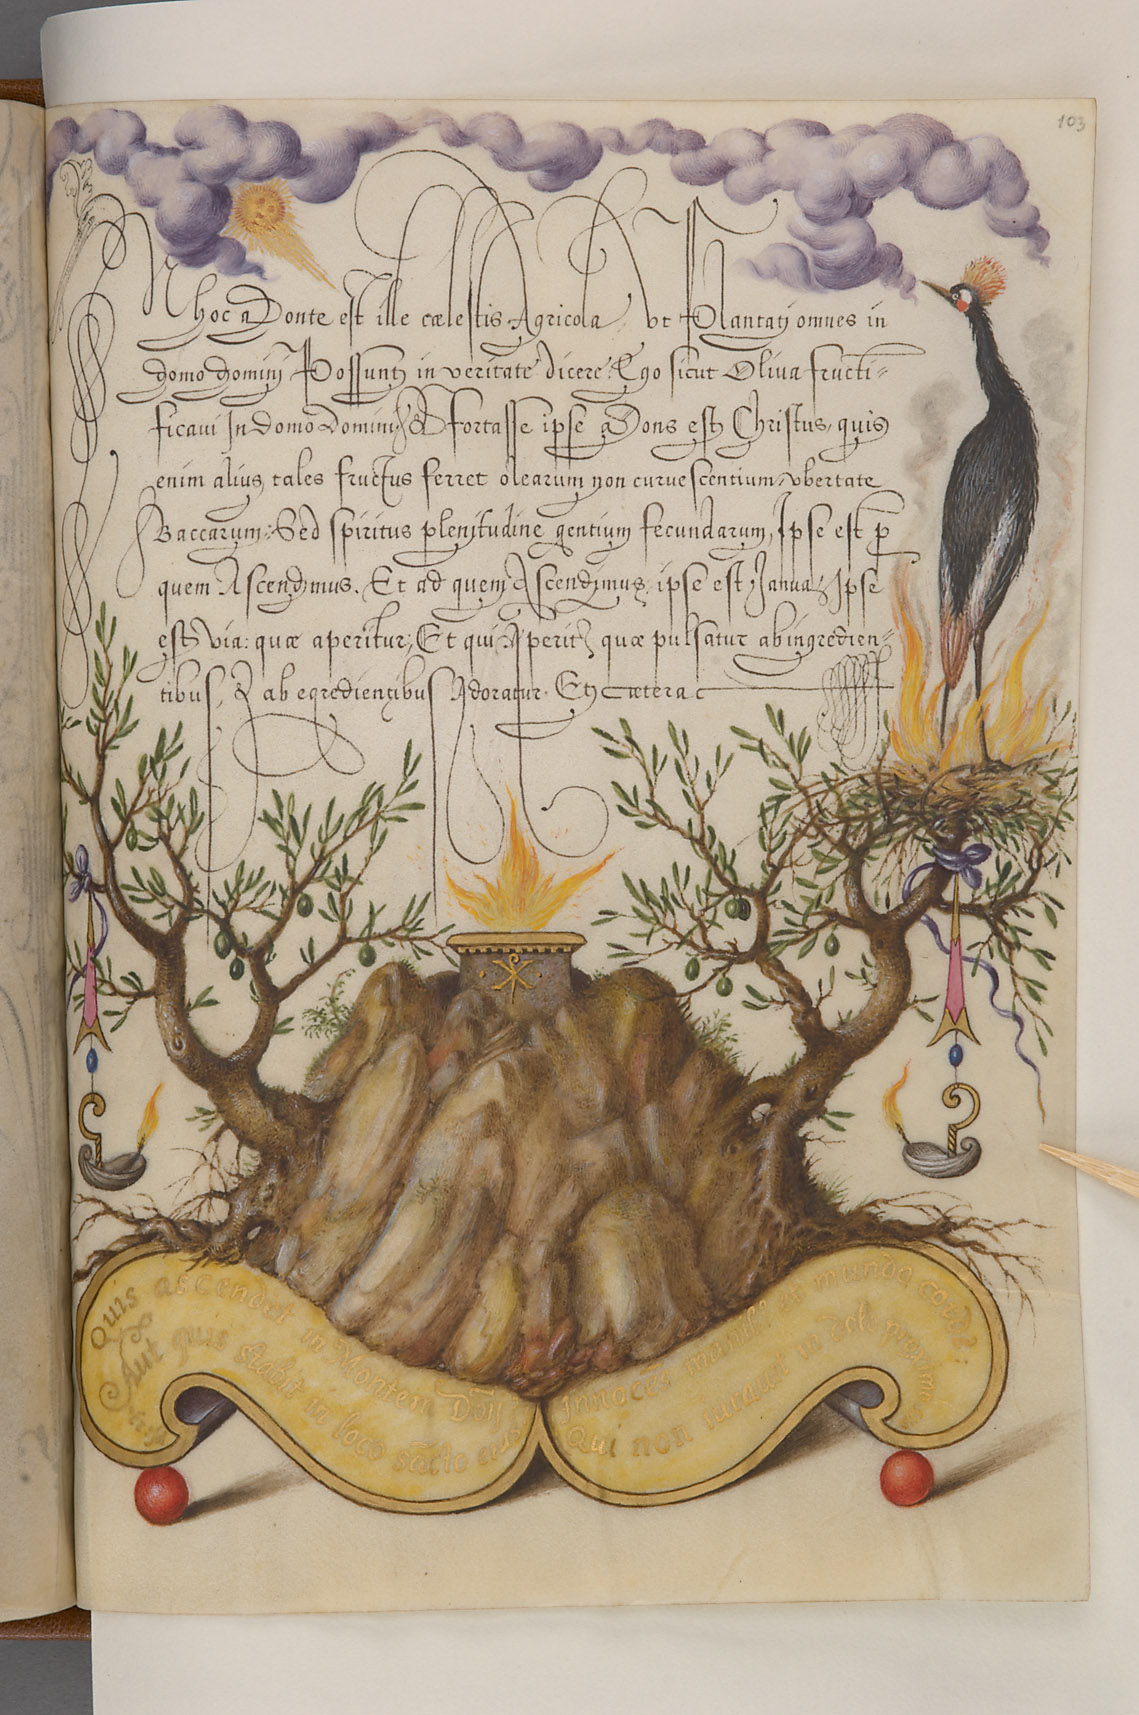 103
IN hoc a Monte est ille cælestis Agricola, vt Plantatj omnes in
domo dominj Possunt in veritate dicere: Ego sicut Oliua fructi=
ficaui In domo Dominj, & fortasse ipse Mons est Christus, quis
enim alius tales fructus ferret olearum non curuescentium vbertate
Baccarum: Sed spiritus plenitudine gentium fecundarum, Ipse est p
quem Ascendimus. Et ad quem Ascendimus, ipse est Janua, Ipse
est via: quæ aperitur, Et qui Aperit, quæ pulsatur ab ingredien=
tibus, & ab egredientibus Adoratur. Et Cætera
Quis ascendet in Montem Dñj
Aut quis stabit in loco sācto eius
Innocēs manib₉ et mundo corde
Qui non iurauit in dolo proximo